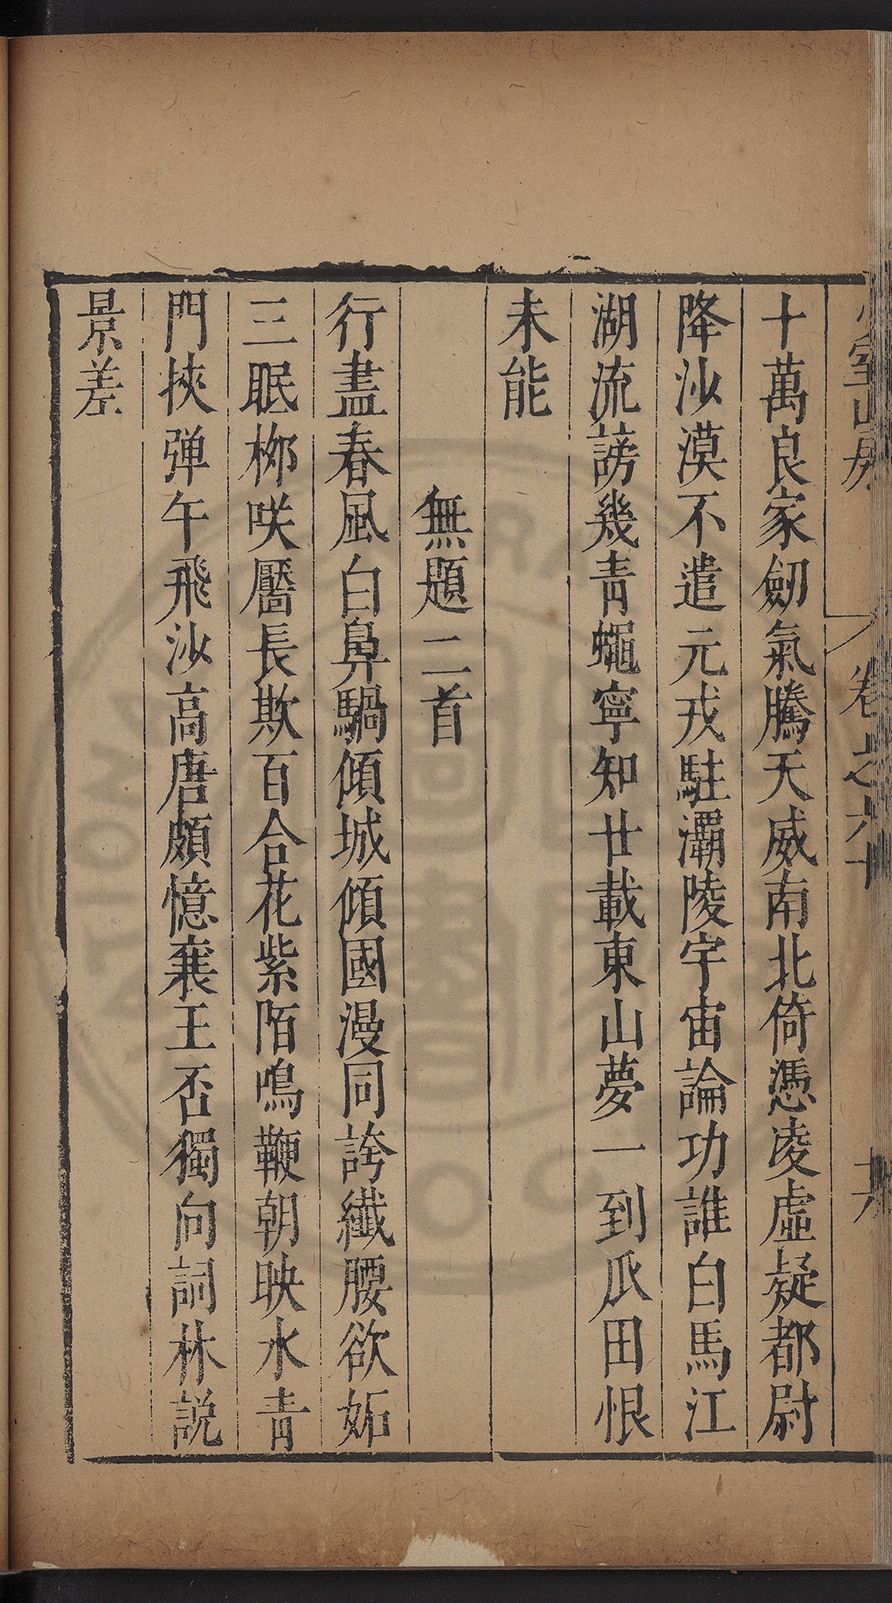 室山房
卷之六十
十萬良家劒氣騰天威南北倚憑凌虛疑都尉
降沙漠不遣元戎駐灞陵宇宙論功誰白馬江
湖流謗幾青蠅寧知廿載東山夢一到瓜田恨
未能
無題二首
行盡春風白鼻騧傾城傾國漫同誇纖腰欲妬
三眠桺咲靨長欺百合花紫陌鳴鞭朝映水青
門挾彈午飛沙高唐頗憶襄王否獨向詞林説
景差